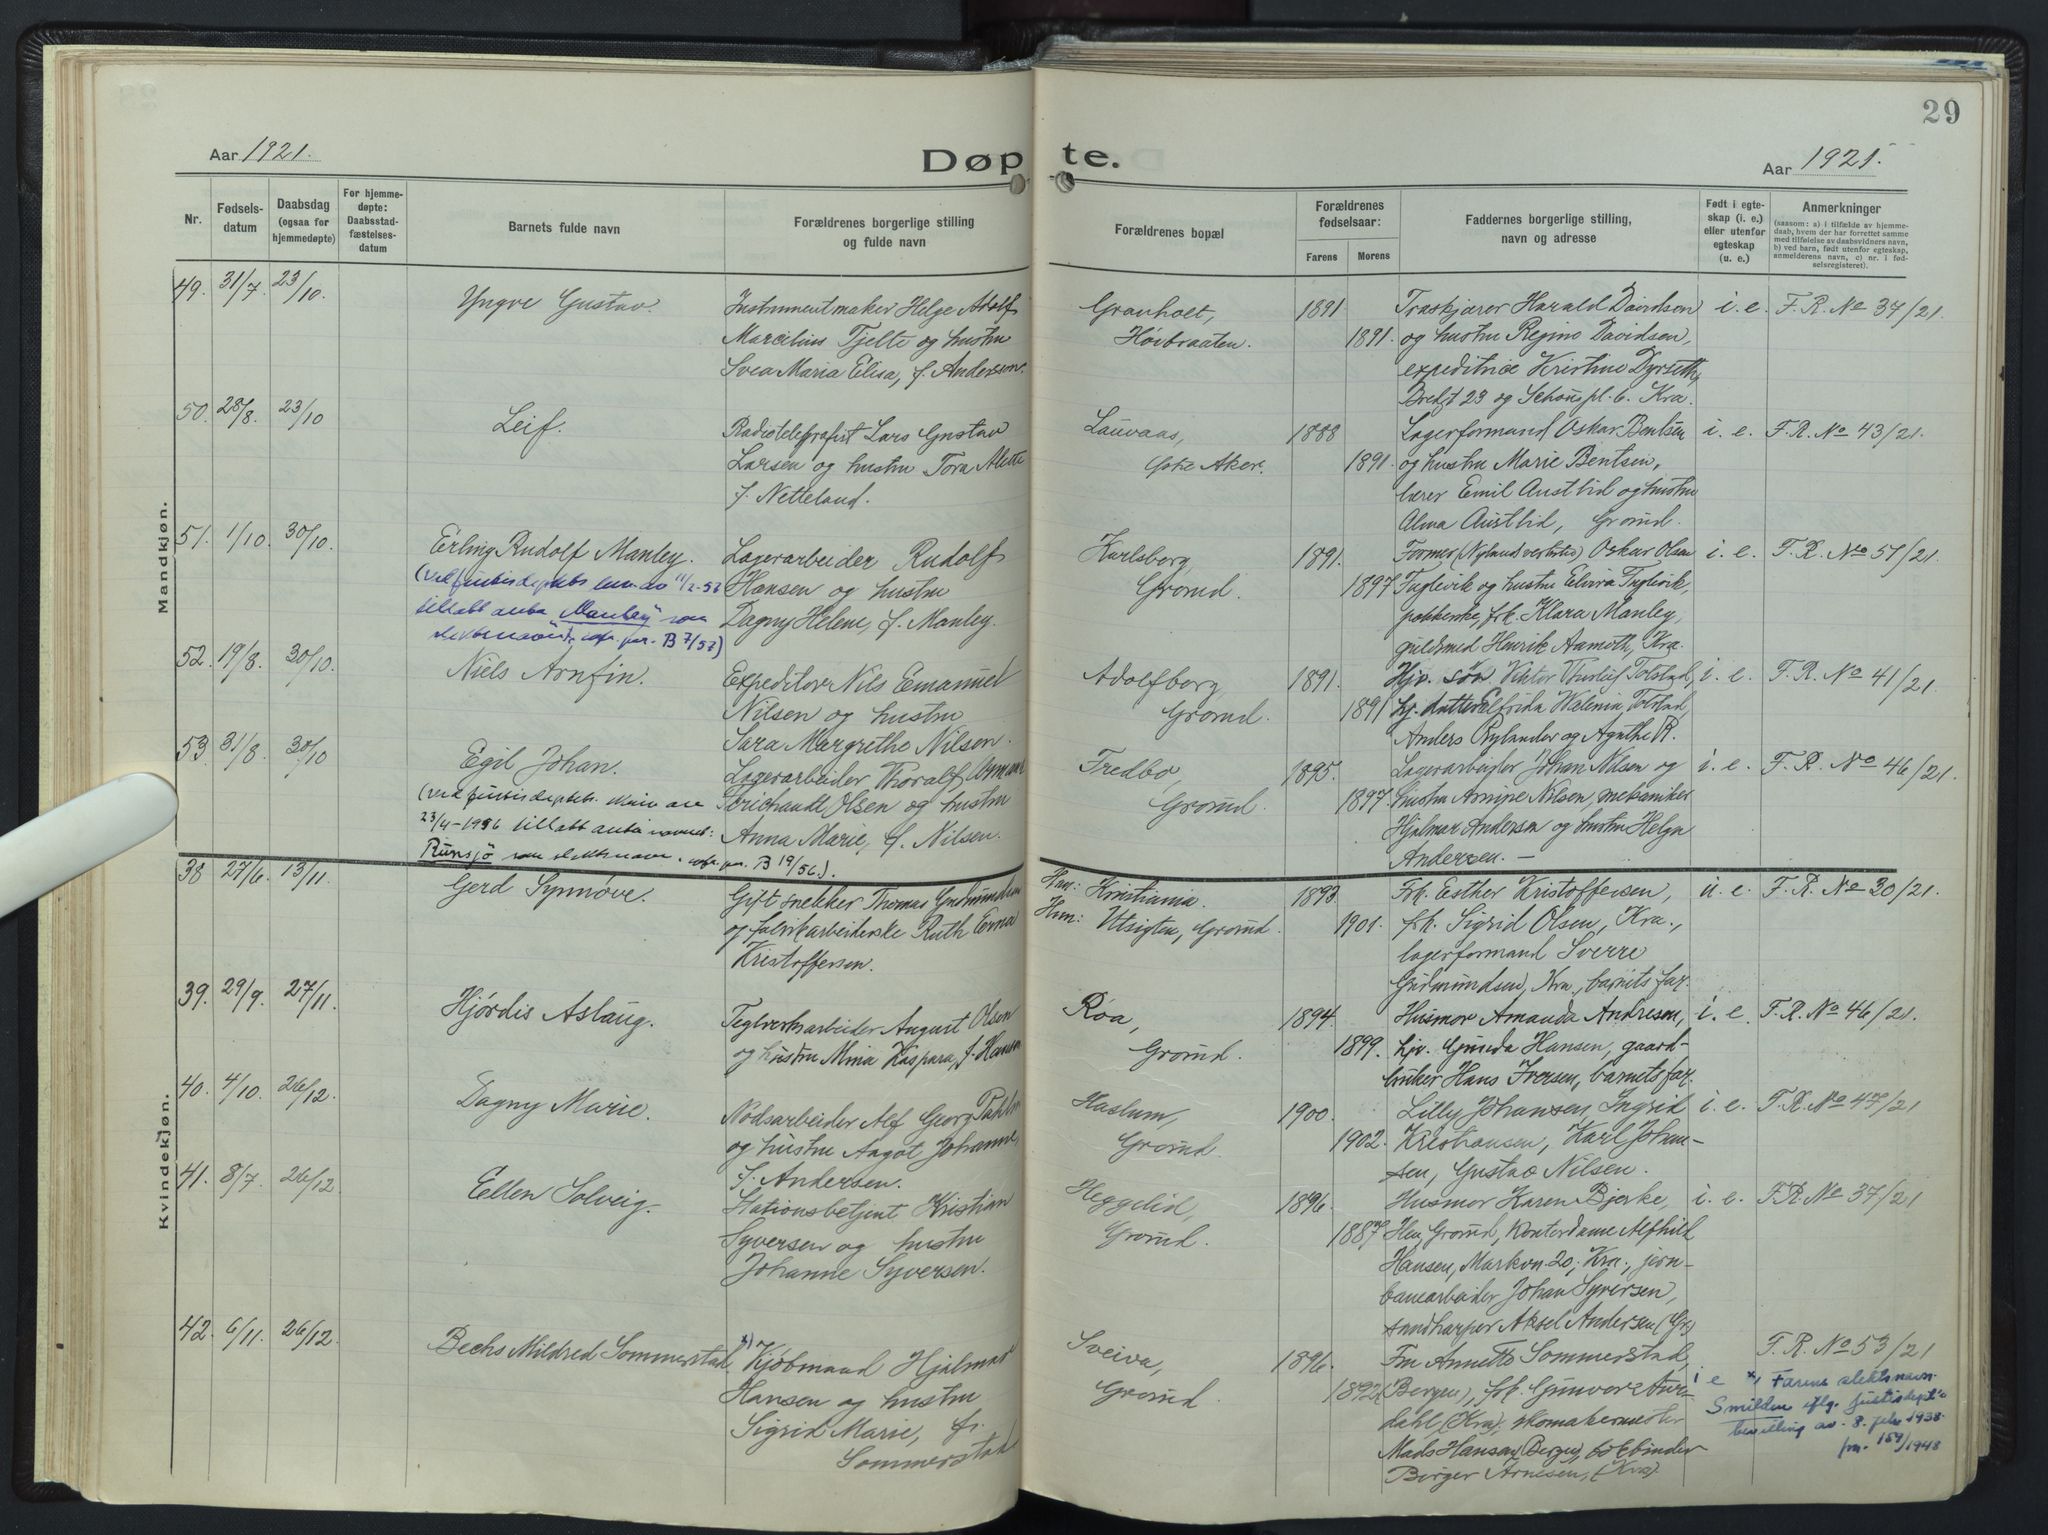 29
Aar 1921.
Døpte.
Aar 1921.
Nr.
Fødsels-
datum
Daabsdag
(ogsaa for
hjemmedøpte)
For hjemme-
døpte:
Daabsstad-
fæstelses-
datum
Barnets fulde navn
Forældrenes borgerlige stilling
og fulde navn
Forældrenes bopæl
Forældrenes
fødselsaar:
Farens
Morens
Faddernes borgerlige stilling,
navn og adresse
Født i egte-
skap (i. e.)
eller utenfor
egteskap
(u. e.)
Anmerkninger
(saasom: a) i tilfælde av hjemme-
daab, hvem der har forrettet samme
med tilføielse av daabsvidners navn,
b) ved barn, født utenfor egteskap,
anmelderens navn, c) nr. i fød-
selsregisteret).
Mandkjøn.
49. 31/7. 23/10. Yngve Gustav.
Instrumentmaker Helge Adolf
Marcelius Tjelte og hustru
Svea Maria Elisa, f. Anderson.
Granholt,
Høibraaten.
1891
1891.
Traskjærer Harald Davidsen
og hustru Regine Davidsen,
expeditrice Kristine Dyrseth,
Bredgt 23 og Schous pl. 6. Kra.
i. e. F. R. No 37/21.
50. 28/8. 23/10 Leif.
Radiotelegrafist Lars Gustav
Larsen og hustru Tora Alette
f. Netteland.
Lauvaas,
Østre Aker.
1888
1891.
Lagerformand Oskar Bentsen
og hustru Marie Bentsen,
lærer Emil Austlid og hustru
Alma Austlid, Grorud.
i. e. F. R. No 43/21.
51. 1/10. 30/10. Erling Rudolf Manley.
(ved justisdeptets 11/2-57
tillatt anta "Manley" som
slektsnavn, cfr. pr. B 7/57)
Lagerarbeider Rudolf
Hansen og hustru
Dagny Helene, f. Manley.
Karlsborg,
Grorud.
1891.
1897
Former (Nylands verksted) Oskar Olsen
Fuglevik og hustru Elvira Fuglevik,
pakkerske, frk. Klara Manley,
guldsmed Henrik Aamoth, Kra.
i. e. F. R. No 51/21.
52. 19/8. 30/10. Niels Arnfin.
Expeditør Nils Emanuel
Nilsen og hustru
Sara Margrethe Nilsen.
Adolfborg,
Grorud.
1891.
1891
Hjv. søn Viktor Tolstad,
hj. datter Elfrida Walenia Tolstad,
Anders Rylander og Agathe R.
i. e. F. R. No 41/21.
53. 31/8. 30/10 Egil Johan.
(ved justisdeptets skriv av
23/4-1956 tillatt anta navnet:
Runsjö som slektsnavn. cfr. pr. B 19/56.)
Lagerarbeider Thoralf Osmund
Olsen og hustru
Anna Marie, f. Nilsen.
Fredbo,
Grorud.
1895.
1897.
Lagerarbeider Johan Nilsen og
hustru Nilsen, mekaniker
Hjalmar Andersen og hustru Helga
Andersen. —
i. e. F. R. No 46/21.
Kvindekjøn.
38 27/6. 13/11. Gerd Synnøve.
Gift snekker Thomas Gudmundsen
og fabrikarbeiderske Ruth Erna
Kristoffersen.
Han: Kristiania.
Hun: Utsigten, Grorud.
1893.
1901.
Frk. Esther Kristoffersen,
frk. Sigrid Olsen, Kra.,
lagerformand Sverre
Gudmundsen, Kra., barnets far.
u. e F. R. No 30/21.
39. 29/9. 27/11. Hjørdis Aslaug.
Teglverksarbeider August Olsen
og hustru Mina Kaspara, f. Hansen
Røa,
Grorud.
1894.
1899.
Husmor Amanda Andresen,
hjv. Gunda Hansen, gaard-
bruker Hans Iversen, barnets far.
i. e. F. R. No 46/21.
40. 4/10. 26/12. Dagny Marie.
Nodsarbeider Alf Georg
og hustru Aagot Johanne,
f. Andersen.
Haslum,
Grorud.
1900.
1902.
Lilly Johansen, Ingrid
Kristiansen, Karl Johan-
sen, Gustav Nilsen.
i. e. F. R. No 47/21
41. 8/7. 26/12 Ellen Solveig.
Stationsbetjent Kristian
Syversen og hustru
Johanne Syversen.
Heggelid,
Grorud.
1896.
1887
Husmor Karen Bjerke,
Grorud, Kontordame Alfhild
Hansen, Markvn. 20, Kra., jern-
banearbeider Johan Syversen,
sandharper Aksel Andersen (Gr)
i. e. F. R. No 37/21
42. 6/11. 26/12. Bechs Mildred Sommerstad.
x) Kjøbmand Hjalmar
Hansen og hustru
Sigrid Marie, f.
Sommerstad
Sveiva,
Grorud.
1896.
1892
Fru Annette Sommerstad,
(Bergen), frk. Gunvor Aure-
dahl (Kra), skomakermester
Mads Hansen (Bergen), bokbinder
Birger Arnesen, (Kra)
i e
F. R. No 53/21
x, Farens slektsnavn
Smilden iflg. justisdept's
bevilling av 8. febr 1938.
pnr. 159/1948